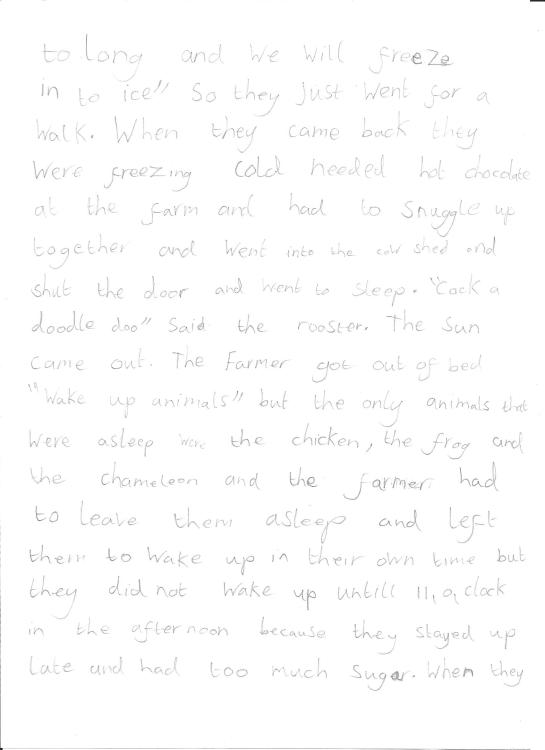 to long and we will freeze
in to ice" So they just went for a
walk. When they came back they
were freezing cold needed hot chocolate
at the farm and had to snuggle up
together and went into the cow shed and
shut the door and went to sleep. "Cock a
doodle doo" said the rooster. The sun
came out. The Farmer got out of bed
"Wake up animals" but the only animals that
were asleep were the chicken, the frog and
the chameleon and the farmer had
to leave them asleep and left
them to wake up in their own time but
they did not wake up untill 11,o,clock
in the afternoon because they stayed up
late and had too much sugar. When they